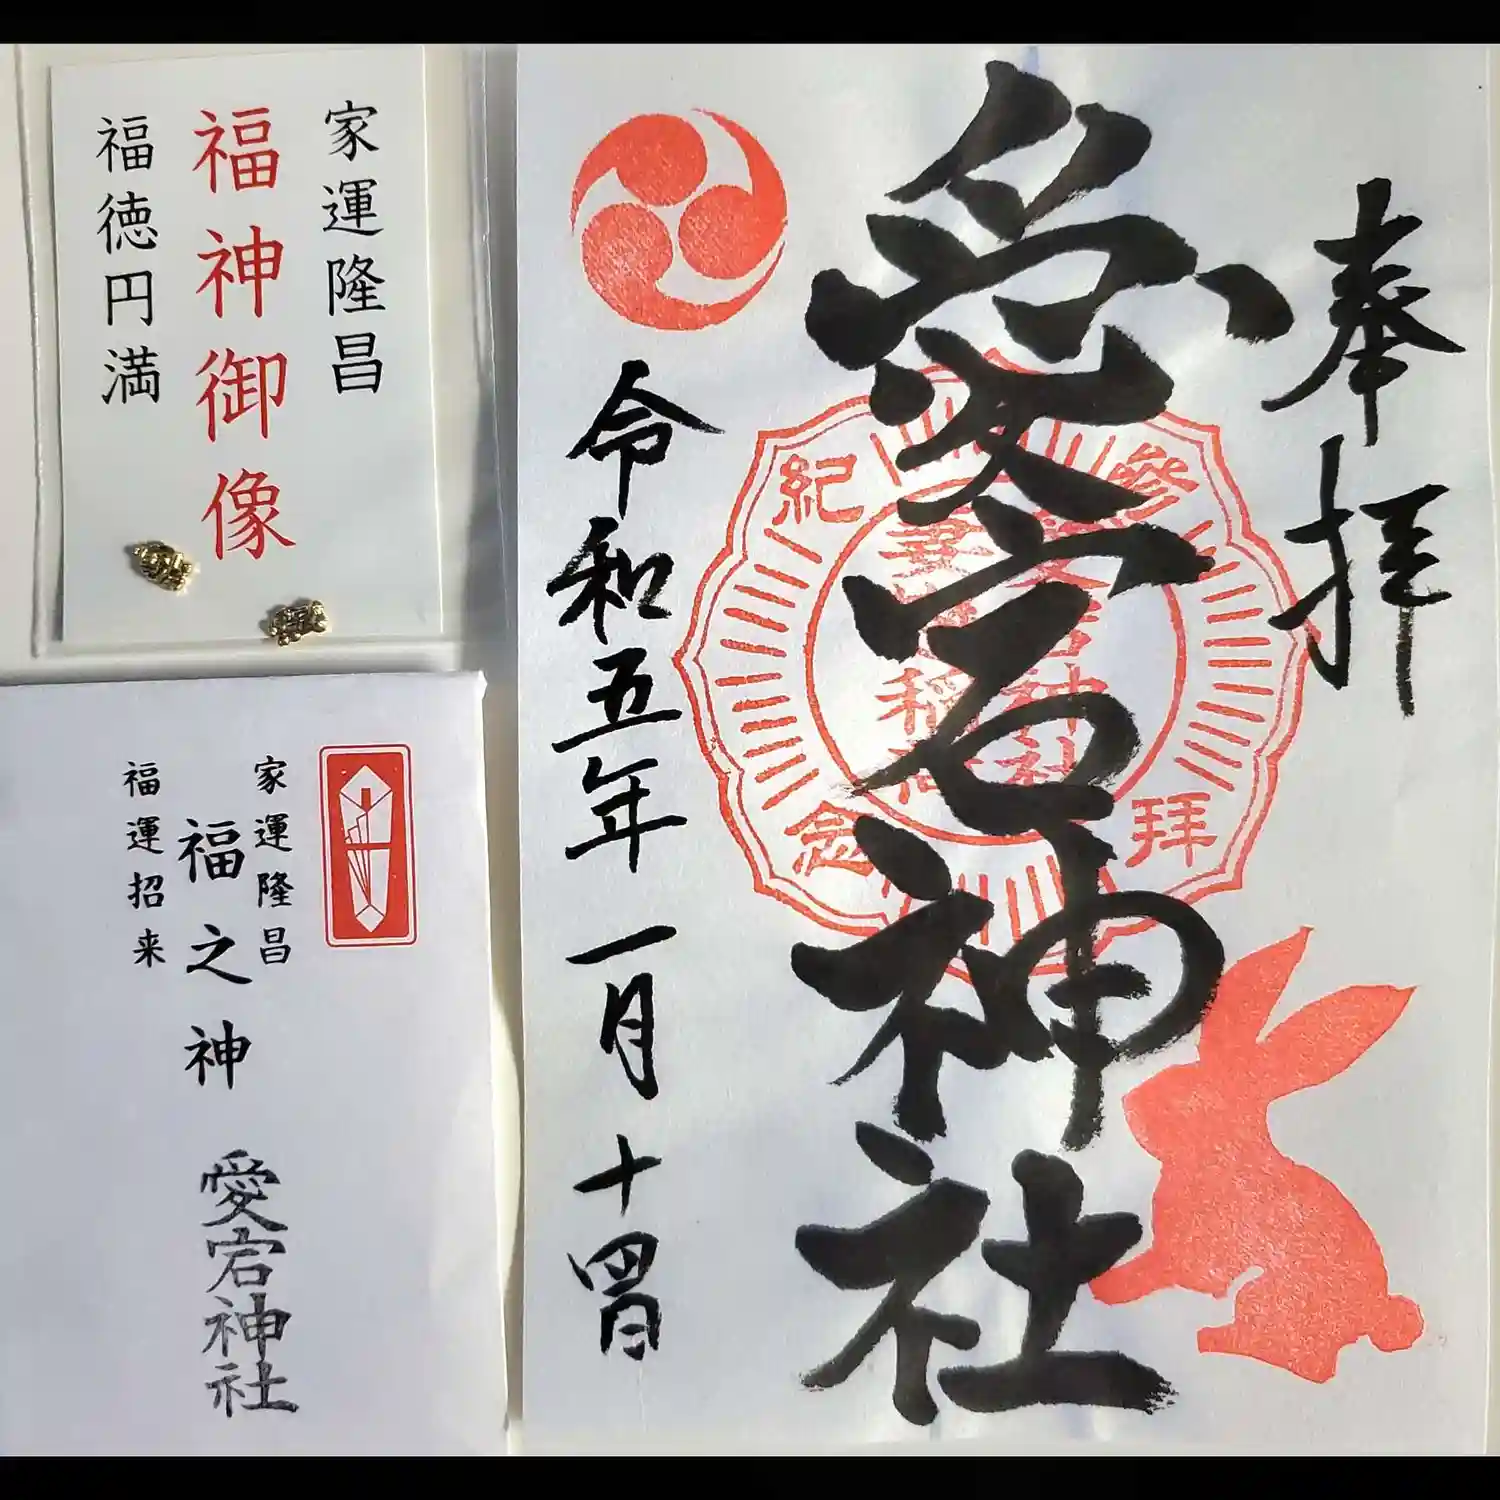 奉拝
愛宕神社
令和五年一月十四日
参拝
紀念
愛宕神社
家運隆昌
福神御像
福徳円満
家運隆昌
福之神
福運招来
愛宕神社